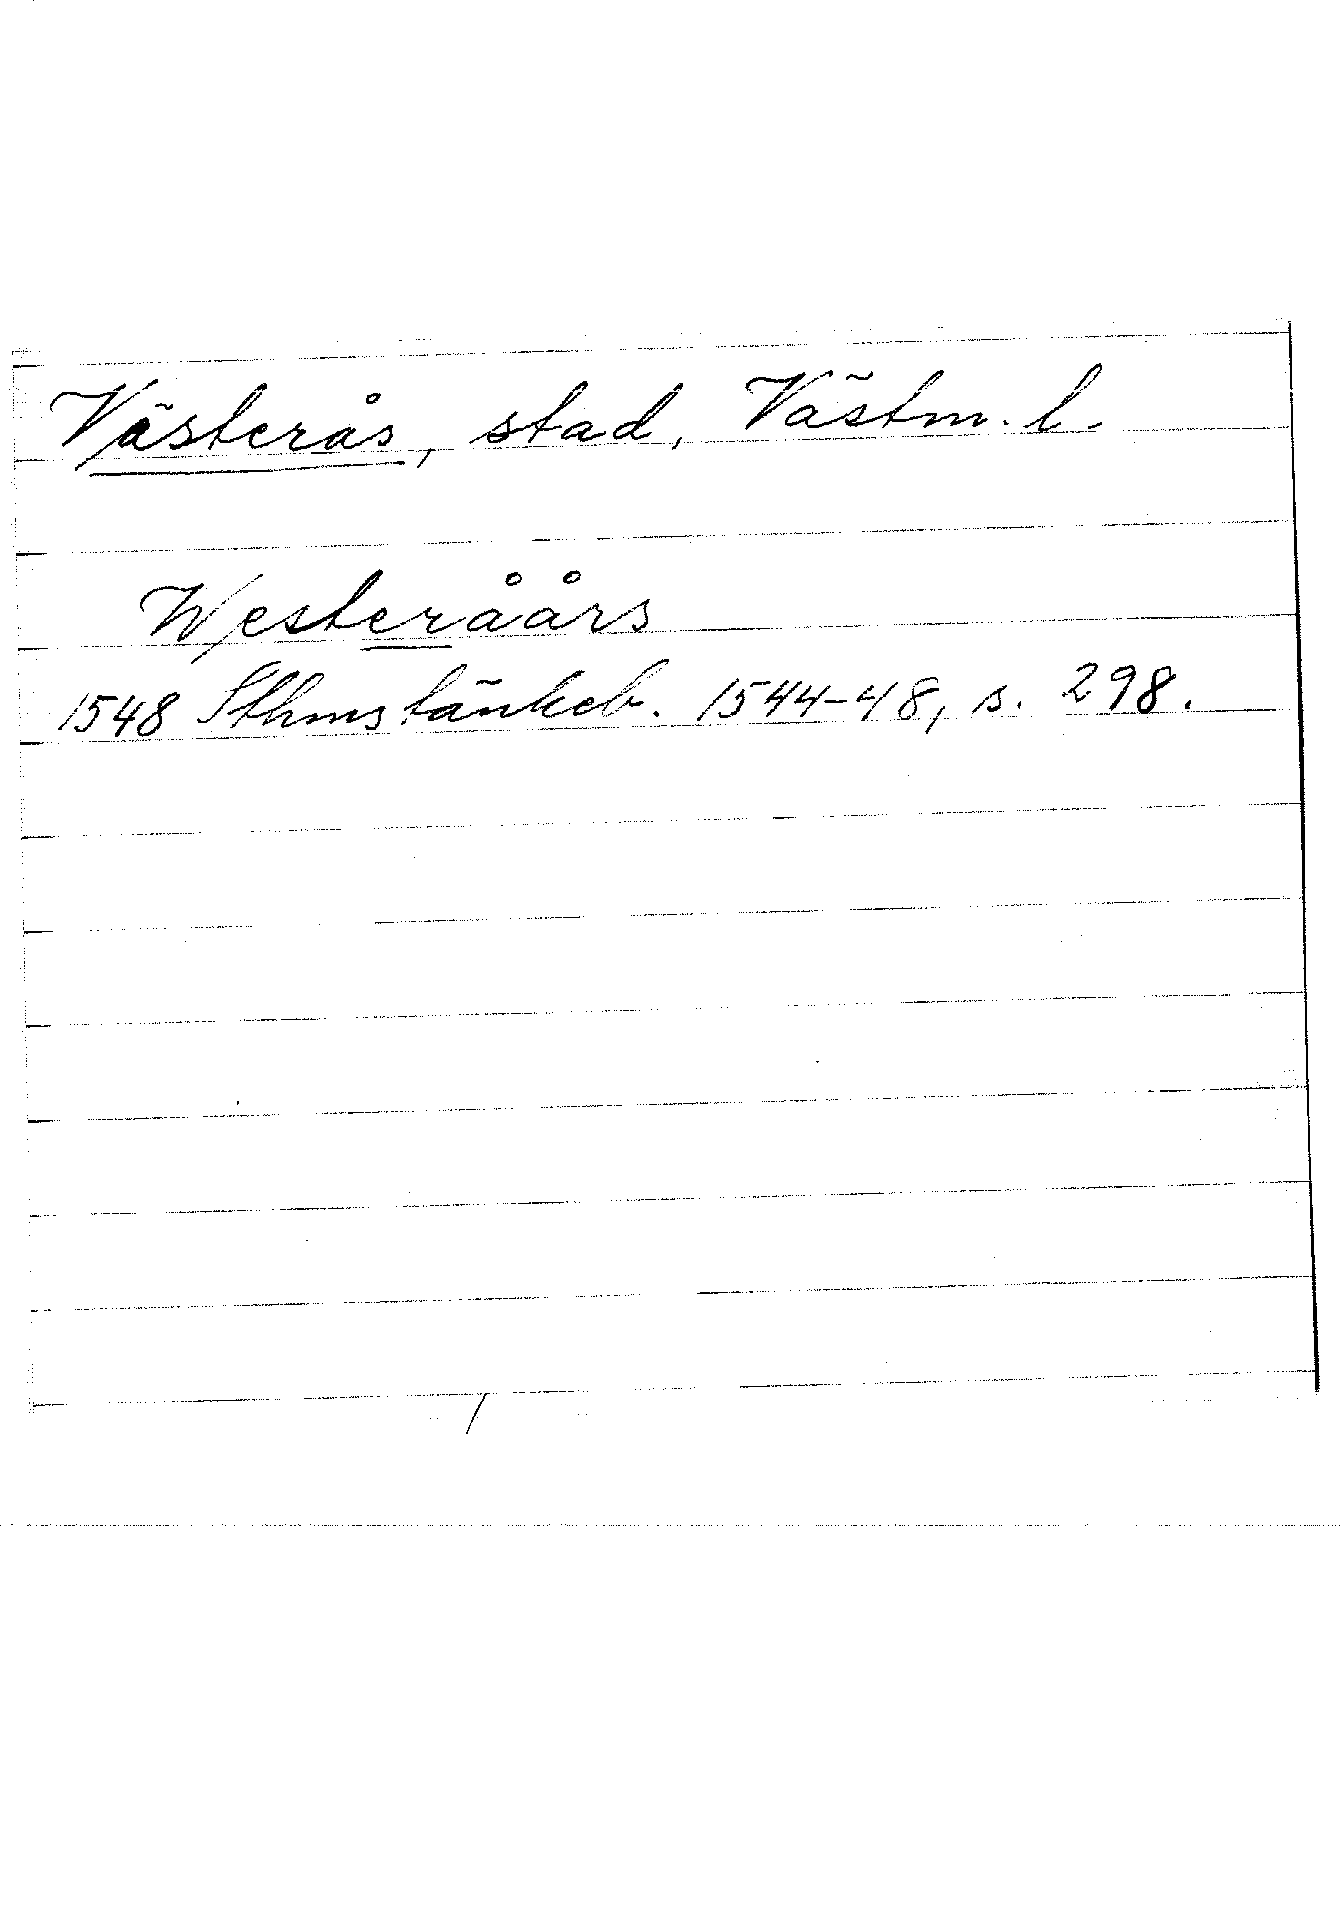 Västerås, stad, Västm. l.
Westeråårs
1548 Sthms tänkeb. 1544-48, s. 298.